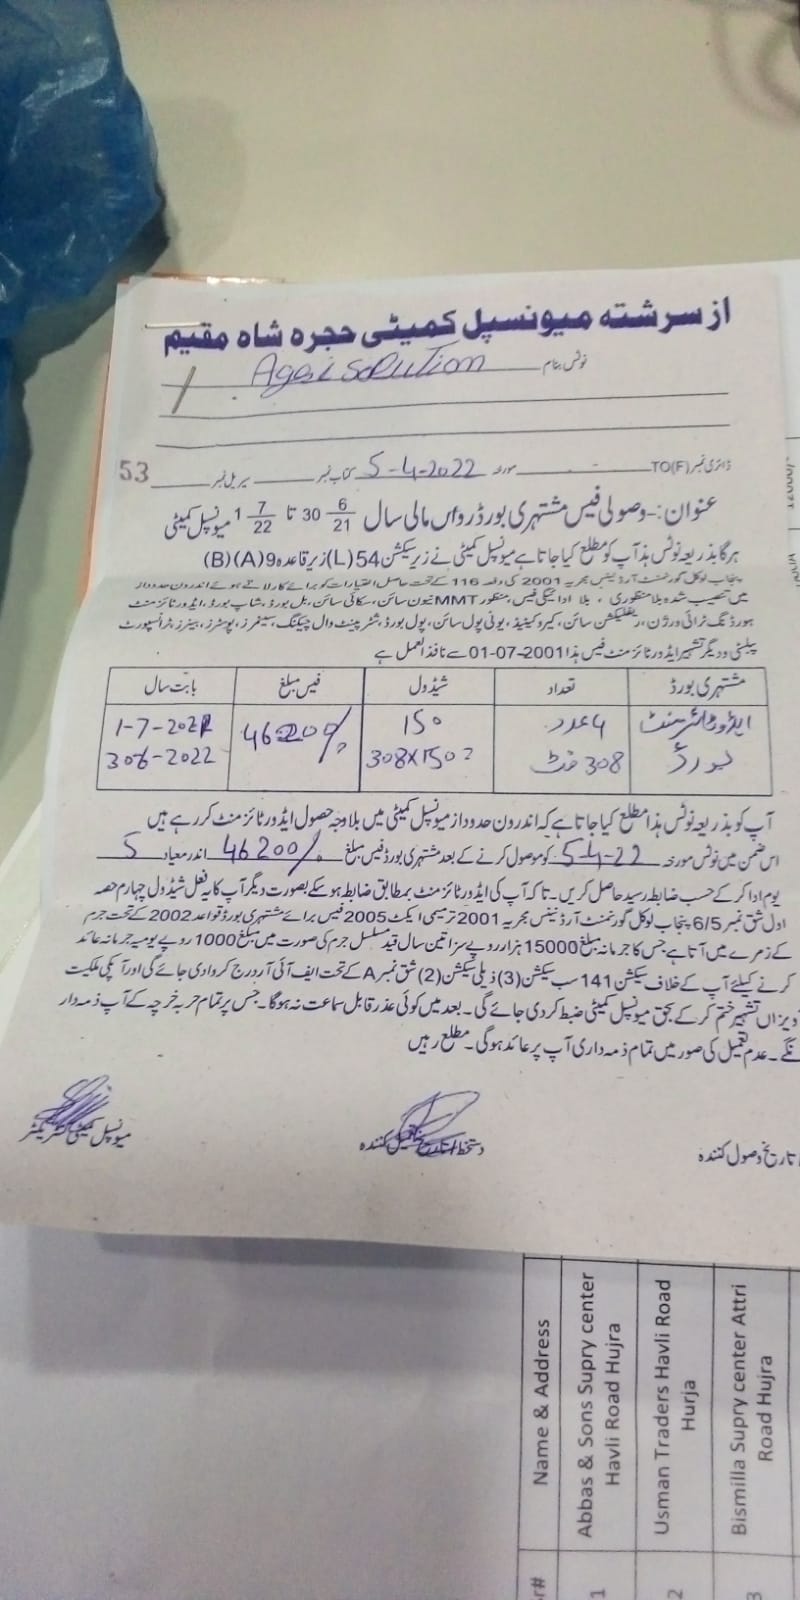 از سرشتہ میونسپل کمیٹی حجرہ شاہ مقیم
نوٹس بنام Agri Solution
ڈائری نمبر TO(F) مورخہ 5-4-2022 کتاب نمبر سیریل نمبر 53
عنوان:- وصولی فیس مشتہری بورڈ رواں مالی سال 6/21 30 تا 7/22 1 میونسپل کمیٹی
ہرگا بذریعہ نوٹس ہذا آپ کو مطلع کیا جاتا ہے میونسپل کمیٹی نے زیر سیکشن 54(L) زیر قاعدہ 9(A)(B)
پنجاب لوکل گورنمنٹ آرڈیننس مجریہ 2001 کی دفعہ 116 کے تحت حاصل اختیارات کو بروئے کار لاتے ہوئے اندرون حدود از
میں تنصیب شدہ بلا منظوری، بلا ادائیگی فیس، منظور MMT نیون سائن، سکائی سائن، بل بورڈ، شاپ بورڈ، ایڈورٹائزمنٹ
ہورڈنگ ٹرائی ورژن، ریفلیکشن سائن، کیروکینیڈ، یونی پول سائن، پول بورڈ، شٹر پینٹ وال چیکنگ، سٹیمرز، پوسٹرز، بینرز، ٹرانسپورٹ
پبلسٹی و دیگر تشہیر ایڈورٹائزمنٹ فیس ہذا 2001-07-01 سے نافذ العمل ہے
مشتہری بورڈ تعداد شیڈول فیس مبلغ بابت سال
ایڈوٹائزمنٹ 4 عدد 150 46200/ 1-7-2021
بورڈ 308 فٹ 308x150= 306-2022
آپ کو بذریعہ نوٹس ہذا مطلع کیا جاتا ہے کہ اندرون حدود از میونسپل کمیٹی میں بلاوجہ حصول ایڈورٹائزمنٹ کر رہے ہیں
اس ضمن میں نوٹس مورخہ 5-4-22 کو موصول کرنے کے بعد مشتہری بورڈ فیس مبلغ 46200/ اندر میعاد 5
یوم ادا کر کے حسب ضابطہ رسید حاصل کریں۔ تاکہ آپ کی ایڈورٹائزمنٹ بمطابق ضابطہ ہو سکے بصورت دیگر آپ کا یہ فعل شیڈول چہارم حصہ
اول شق نمبر 6/5 پنجاب لوکل گورنمنٹ آرڈیننس مجریہ 2001 ترمیمی ایکٹ 2005 فیس برائے مشتہری بورڈ قواعد 2002 کے تحت جرم
کے زمرے میں آتا ہے جس کا جرمانہ مبلغ 15000 ہزار روپے سزا تین سال قید مسلسل جرم کی صورت میں مبلغ 1000 روپے یومیہ جرمانہ عائد
کرنے کیلئے آپ کے خلاف سیکشن 141 سب سیکشن (3) ذیلی سیکشن (2) شق نمبر A کے تحت ایف آئی آر درج کروا دی جائے گی اور آپکی ملکیت
ویزاں تشہیر ختم کر کے بحق میونسپل کمیٹی ضبط کر دی جائے گی۔ بعد میں کوئی عذر قابل سماعت نہ ہوگا۔ جس پر تمام حربہ خرچہ کے آپ ذمہ دار
نگے۔ عدم تعمیل کی صور میں تمام ذمہ داری آپ پر عائد ہوگی۔ مطلع رہیں
تاریخ وصول کنندہ
دستخط تعمیل کنندہ
میونسپل کمیٹی کنٹریکٹر
Sr# Name & Address
1 Abbas & Sons Supry center Havli Road Hujra
2 Usman Traders Havli Road Hurja
3 Bismilla Supry center Attri Road Hujra